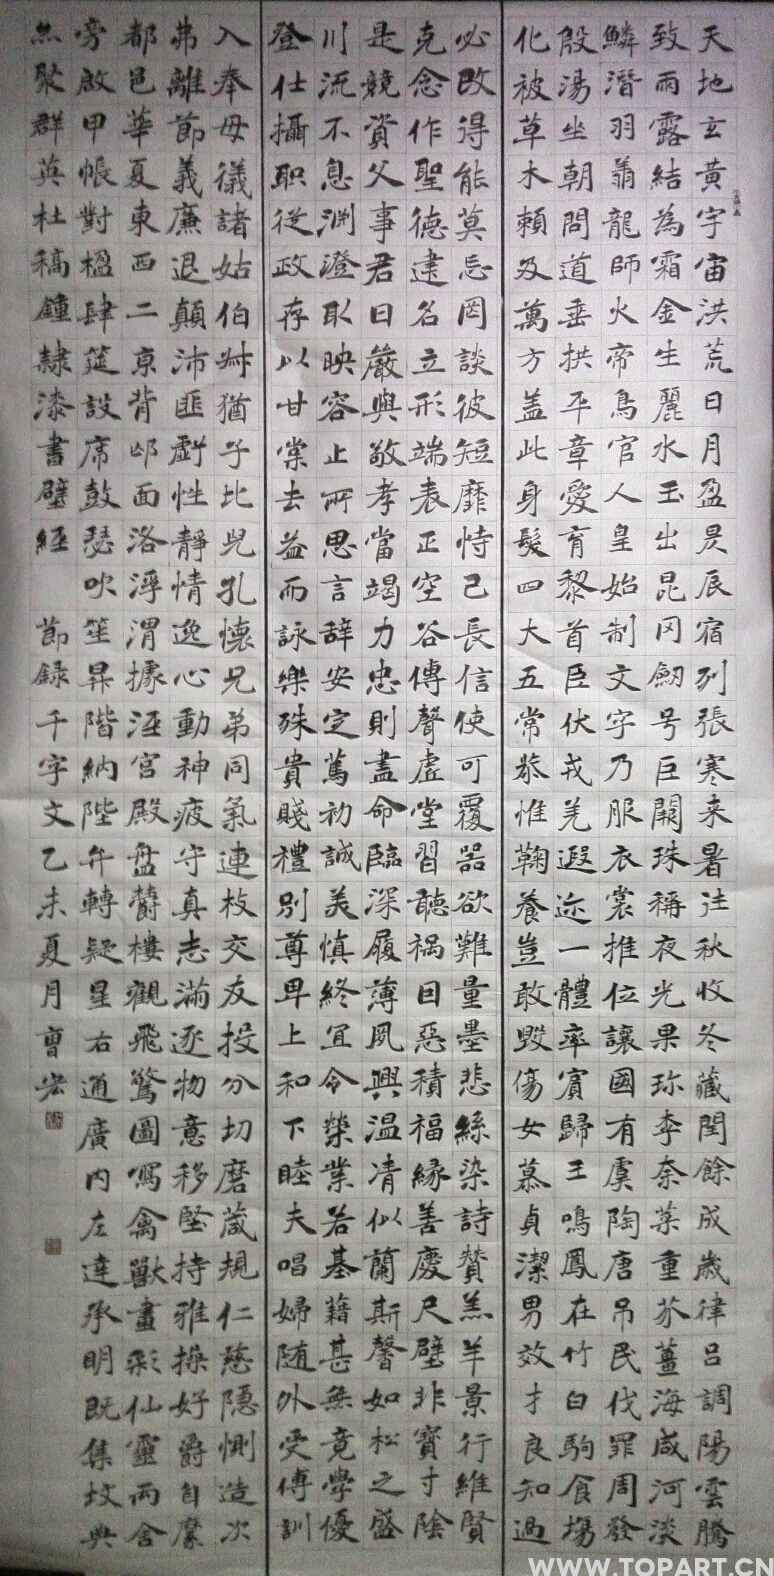 天地玄黃宇宙洪荒日月盈昃辰宿列張寒来暑往秋收冬藏閏餘成歲律呂調陽雲騰
致雨露結為霜金生麗水玉出昆冈劒号巨闕珠稱夜光果珍李奈菜重芥薑海咸河淡
鱗潛羽翔龍師火帝鳥官人皇始制文字乃服衣裳推位讓國有虞陶唐吊民伐罪周發
殷湯坐朝問道垂拱平章愛育黎首臣伏戎羌遐迩一體率賓歸王鳴鳳在竹白駒食場
化被草木賴及萬方盖此身髮四大五常恭惟鞠養豈敢毀傷女慕貞潔男效才良知過
必改得能莫忘罔談彼短靡恃己長信使可覆器欲難量墨悲絲染詩贊羔羊景行維賢
克念作聖德建名立形端表正空谷傳聲虚堂習聽禍因惡積福緣善慶尺璧非寶寸陰
是競資父事君曰嚴與敬孝當竭力忠則盡命臨深履薄夙興温凊似蘭斯馨如松之盛
川流不息渊澄取映容止所思言辞安定篤初誠美慎終宜令榮業若基藉甚無竟學優
登仕攝职從政存以甘棠去益而詠樂殊貴賤禮別尊卑上和下睦夫唱婦随外受傅訓
入奉母儀諸姑伯叔猶子比兒孔懷兄弟同氣連枝交友投分切磨箴規仁慈隱惻造次
弗離節義廉退顛沛匪虧性靜情逸心動神疲守真志滿逐物意移堅持雅操好爵自縻
都邑華夏東西二京背邙面洛浮渭據涇宮殿盘欝樓觀飛驚圖寫禽獸畫彩仙靈丙舍
旁啟甲帳對楹肆筵設席鼓瑟吹笙昇階納陛弁轉疑星右通廣内左達承明既集坟典
亦聚群英杜稿鍾隸漆書壁經 節録千字文乙未夏月曹宏
WWW.TOPART.CN